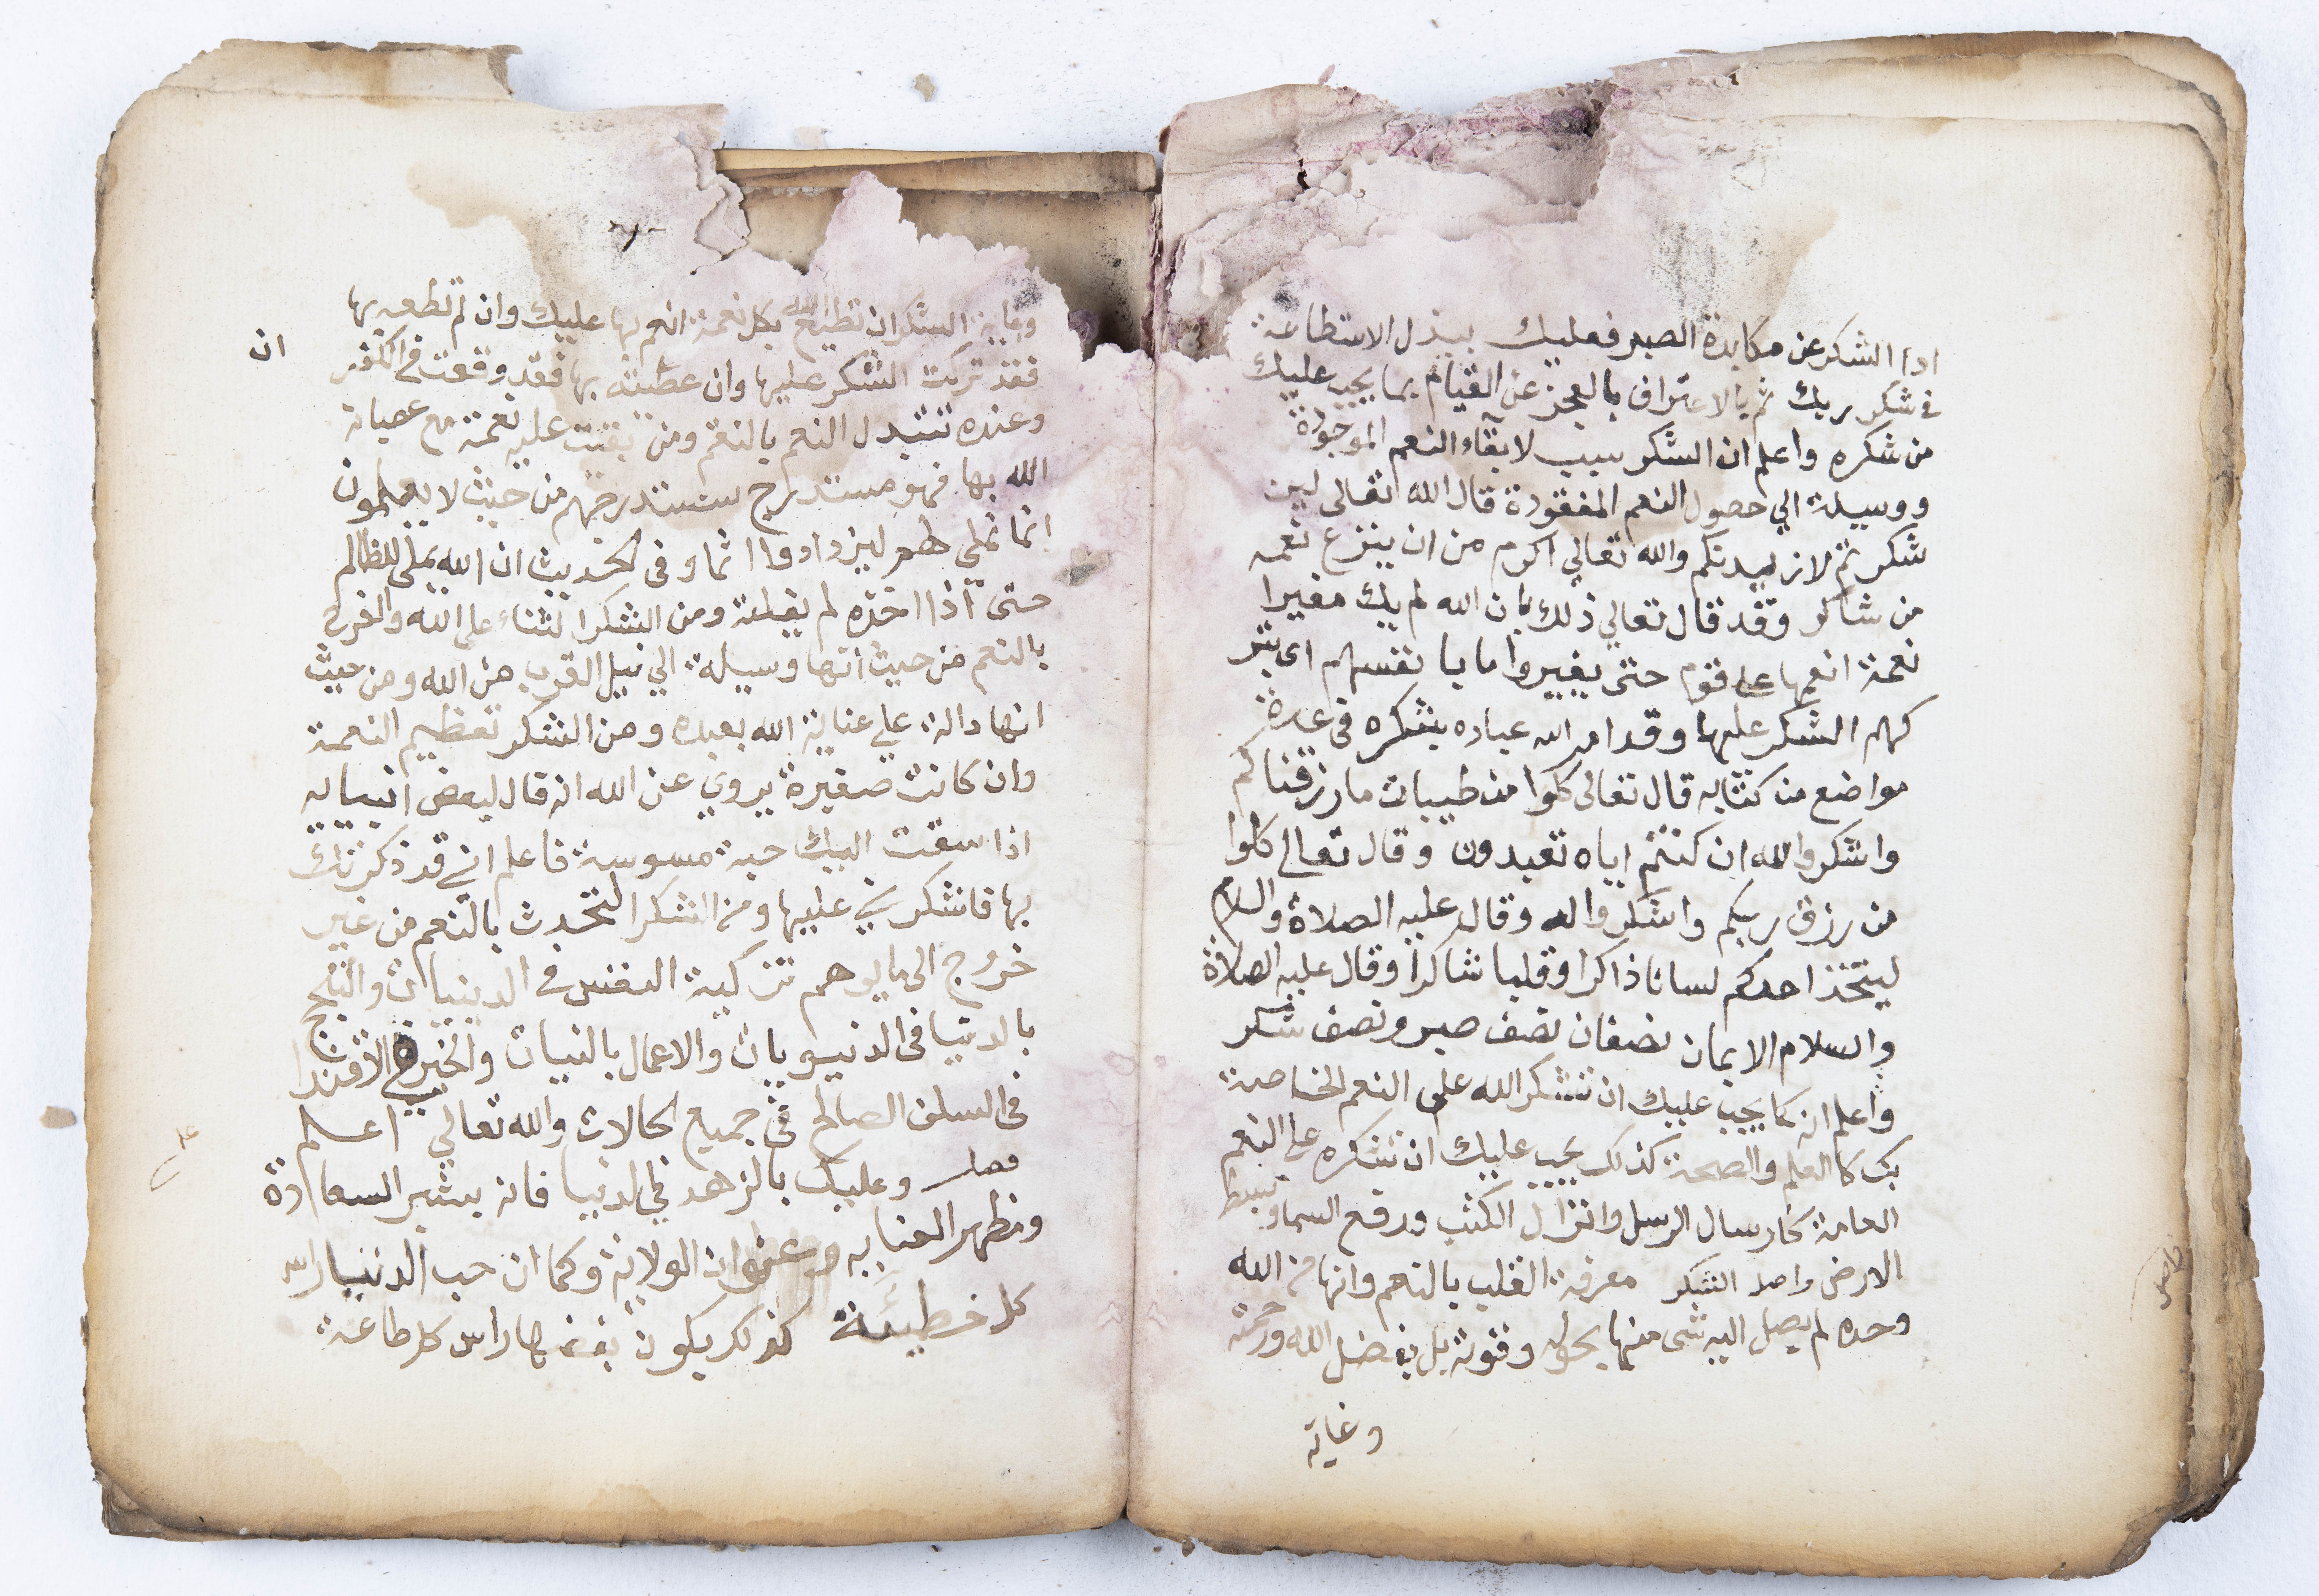 ادا الشكر عن مكابدة الصبر فعليك ببذل الاستطاعة
في شكر ربك ثم بالاعتراف بالعجز عن القيام بما يجب عليك
من شكره واعلم ان الشكر سبب لابقاء النعم الموجودة
ووسيلة الي حصول النعم المفقودة قال الله تعالى لين
شكرتم لازيدنكم والله تعالي اكرم من ان ينزع نعمه
من شاكر وقد قال تعالي ذلك بان الله لم يك مغيرا
نعمة انعمها على قوم حتى يغيروا ما بانفسهم اى بتر
كهم الشكر عليها وقد امر الله عباده بشكره في عدة
مواضع من كتابه قال تعالى كلوا من طيبات ما رزقناكم
واشكروا لله ان كنتم اياه تعبدون وقال تعالى كلوا
من رزق ربكم واشكروا له وقال عليه الصلاة والسلام
ليتخذ احدكم لسانا ذاكرا وقلبا شاكرا وقال عليه الصلاة
والسلام الايمان نصفان نصف صبر ونصف شكر
واعلم انه كما يجب عليك ان تشكر الله على النعم الخاصة
بك كالعلم والصحة كذلك يجب عليك ان تشكره على النعم
العامة كارسال الرسل وانزال الكتب ورفع السما وبسط
الارض واصل الشكر معرفة القلب بالنعم وانها من الله
وحده لم يصل اليه شى منها بحوله وقوته بل بفضل الله ورحمته
وغاية
وغاية الشكر ان تطيع الله بكل نعمة انعم بها عليك وان لم تطعه بها
فقد تركت الشكر عليها وان عصيته بها فقد وقعت في الكفر
ان
وعنده تتبدل النعم بالنقم ومن بقيت عليه نعمة مع عصيانه
الله بها فهو مستدرج سنستدرجهم من حيث لا يعلمون
انما نملي لهم ليزدادوا اثما وفى الحديث ان الله يملى للظالم
حتى اذا اخذه لم يفلته ومن الشكر الثناء على الله والفرح
بالنعم من حيث انها وسيلة الي نيل القرب من الله ومن حيث
انها دالة على عناية الله بعبده ومن الشكر تعظيم النعمة
وان كانت صغيرة يروي عن الله انه قال لبعض انبيايه
اذا سقت اليك حبة مسوسة فاعلم اني قد ذكرتك
بها فاشكرني عليها ومن الشكر التحدث بالنعم من غير
خروج الى ما يوهم تزكية النفس في الدينيات والتبجح
بالدنيا في الدنيويات والاعمال بالنيات والخير في الاقتدا
في السلف الصالح في جميع الحالات والله تعالي اعلم
فصل وعليك بالزهد في الدنيا فانه مبشر السعادة
ومظهر العنايه وعنوان الولاية وكما ان حب الدنيا راس
كل خطيئة كذلك يكون بغضها راس كل طاعة